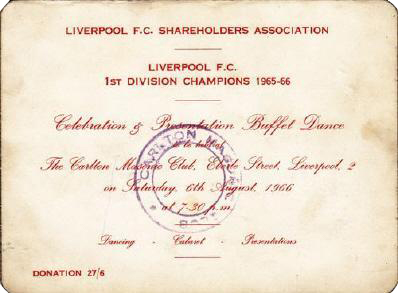 LIVERPOOL F.C. SHAREHOLDERS ASSOCIATION
LIVERPOOL F.C.
1ST DIVISION CHAMPIONS 1965-66
Celebration & Presentation Buffet Dance
to be held at
The Carlton Masonic Club, Eberle Street, Liverpool, 2
on Saturday, 6th August, 1966
at 7-30 p.m.
Dancing - Cabaret - Presentations
DONATION 27/6
CARLTON MASONIC